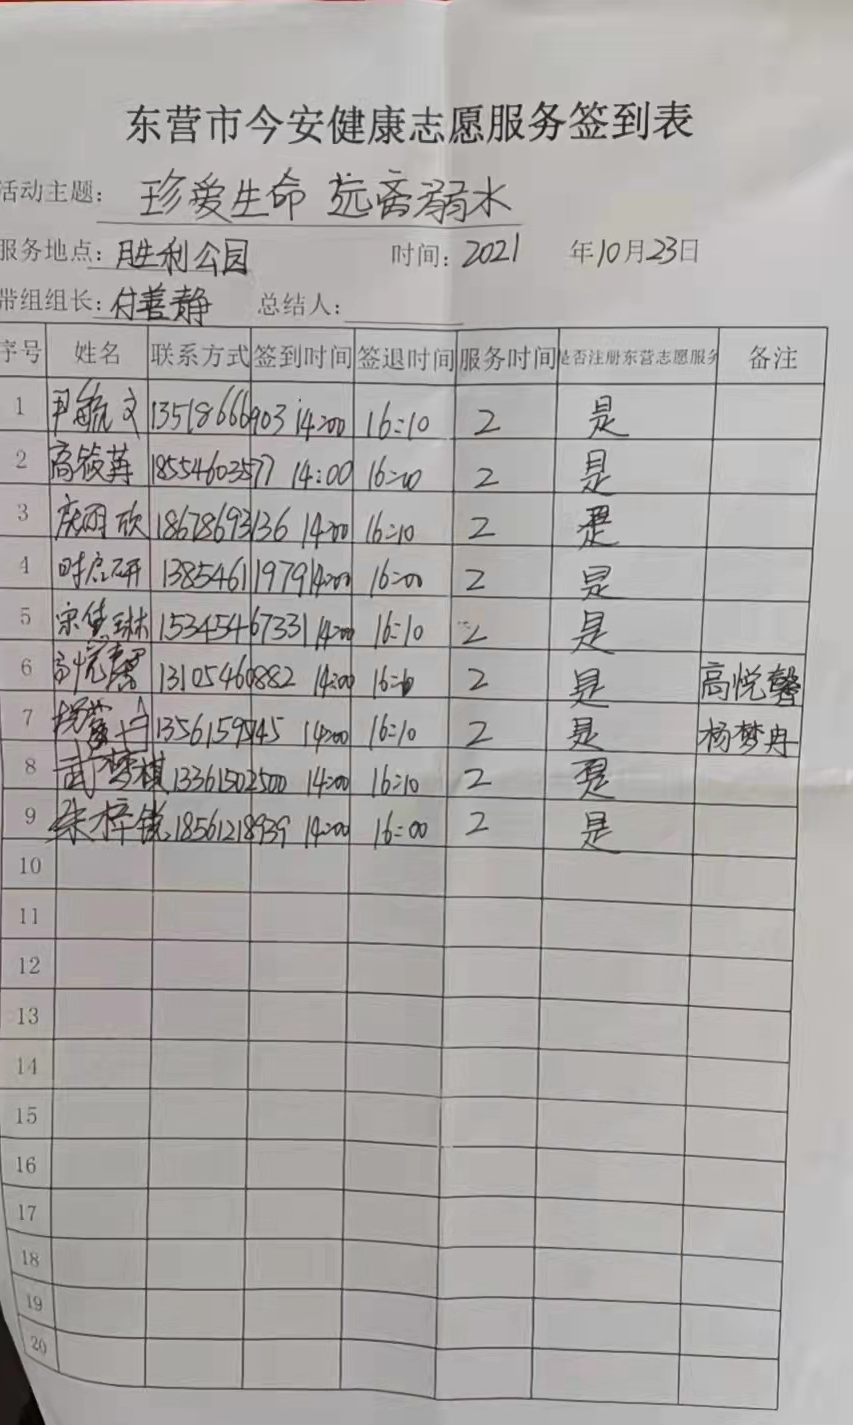 东营市今安健康志愿服务签到表
活动主题: 珍爱生命 远离溺水
服务地点: 胜利公园 时间: 2021 年10月23日
带组组长: 付善静 总结人:
序号 姓名 联系方式 签到时间 签退时间 服务时间 是否注册东营志愿服务 备注
1 尹航文 13518666903 14:00 16:10 2 是
2 高筱苒 18554603577 14:00 16:00 2 是
3 庆明欣 18678693136 14:00 16:10 2 是
4 时启研 13854611979 14:00 16:00 2 是
5 宋佳琳 15345467331 14:00 16:10 2 是
6 高悦馨 13105460882 14:00 2 是 高悦馨
7 杨梦冉 14:00 16:10 2 是 杨梦冉
8 武梦棋 13361502500 14:00 16:10 2 是
9 朱梓锐 18561218939 14:00 16:00 2 是
10
11
12
13
14
15
16
17
18
19
20